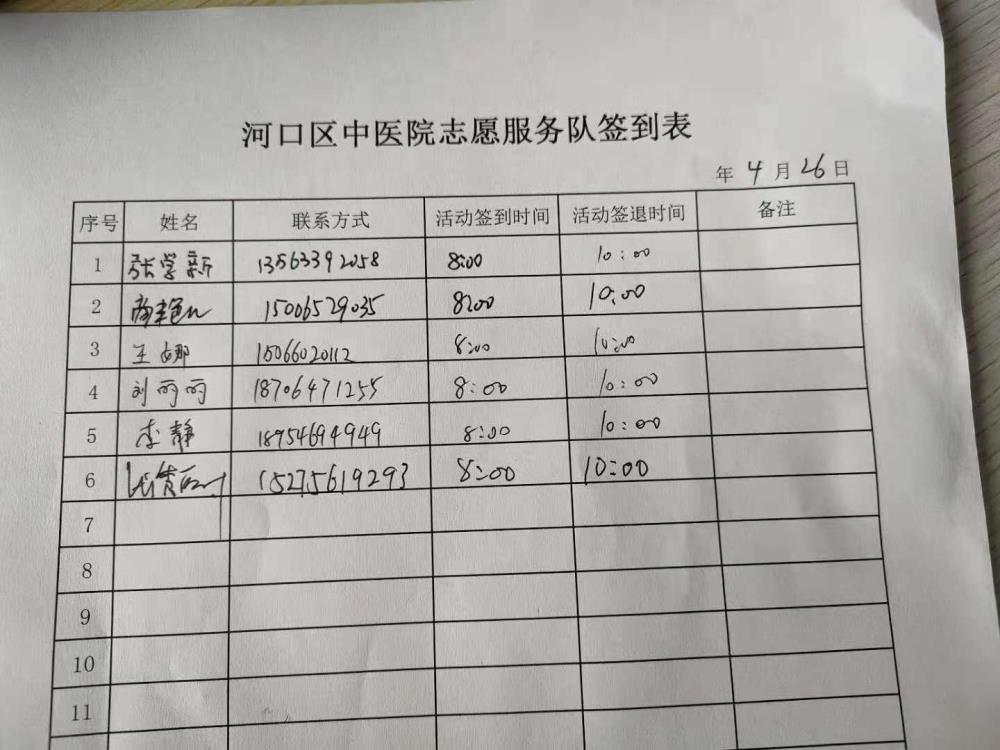 河口区中医院志愿服务队签到表
年 4 月 26 日
序号 姓名 联系方式 活动签到时间 活动签退时间 备注
1 张学新 13563392058 8:00 10:00
2 15006529035 8:00 10:00
3 王娜 15066020112 8:00 10:00
4 刘丽丽 18706471255 8:00 10:00
5 李静 18954694949 8:00 10:00
6 15275619293 8:00 10:00
7
8
9
10
11